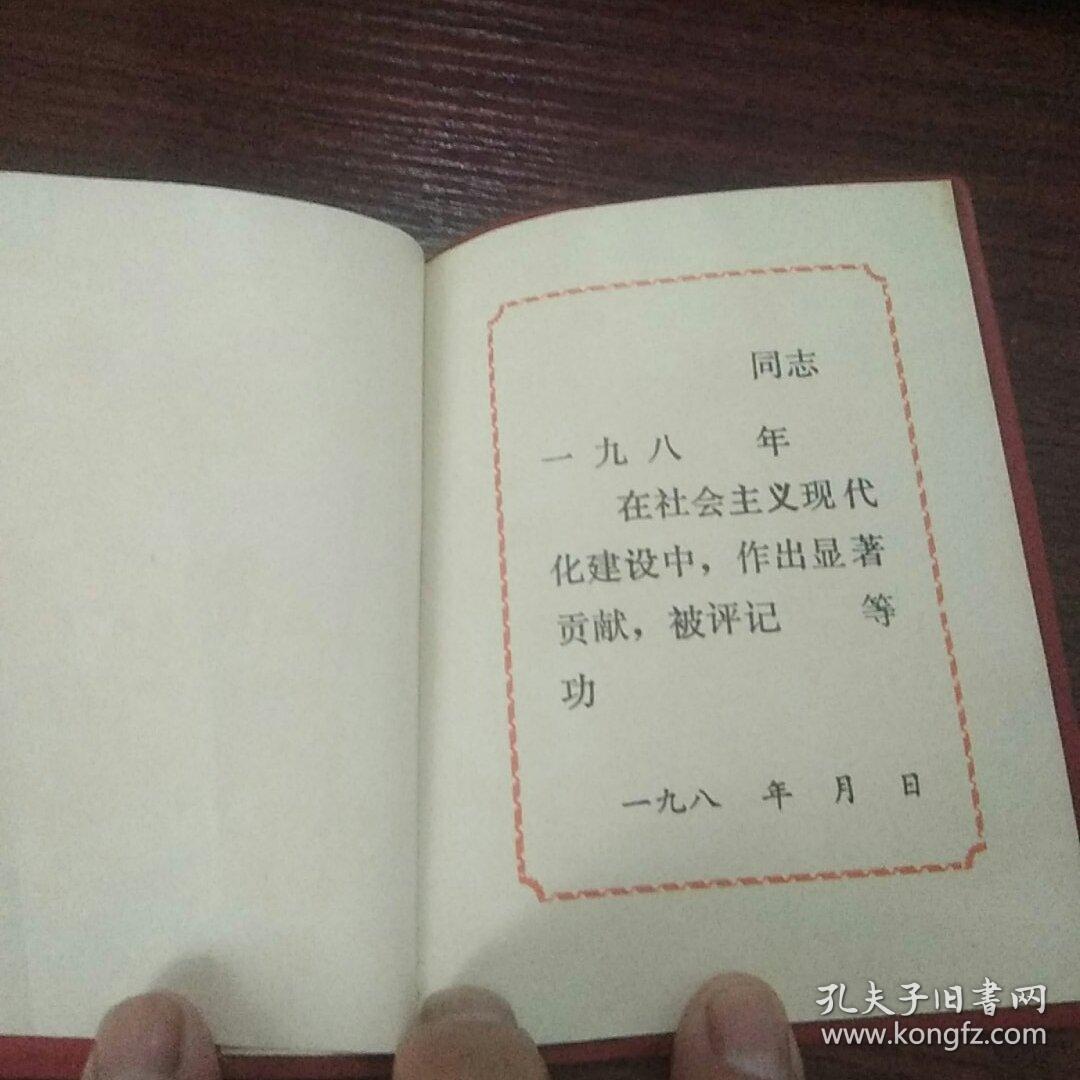 同志
一九八 年
在社会主义现代
化建设中，作出显著
贡献，被评记 等
功
一九八 年 月 日
孔夫子旧書网
www.kongfz.com